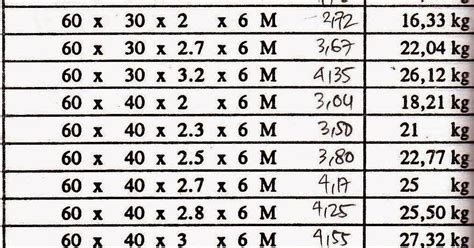 60 x 30 x 2 x 6 M 2,72 16,33 kg
60 x 30 x 2.7 x 6 M 3,67 22,04 kg
60 x 30 x 3.2 x 6 M 4,35 26,12 kg
60 x 40 x 2 x 6 M 3,04 18,21 kg
60 x 40 x 2.3 x 6 M 3,50 21 kg
60 x 40 x 2.5 x 6 M 3,80 22,77 kg
60 x 40 x 2.7 x 6 M 4,17 25 kg
60 x 40 x 2.8 x 6 M 4,25 25,50 kg
60 x 40 x 3 x 6 M 4,55 27,32 kg